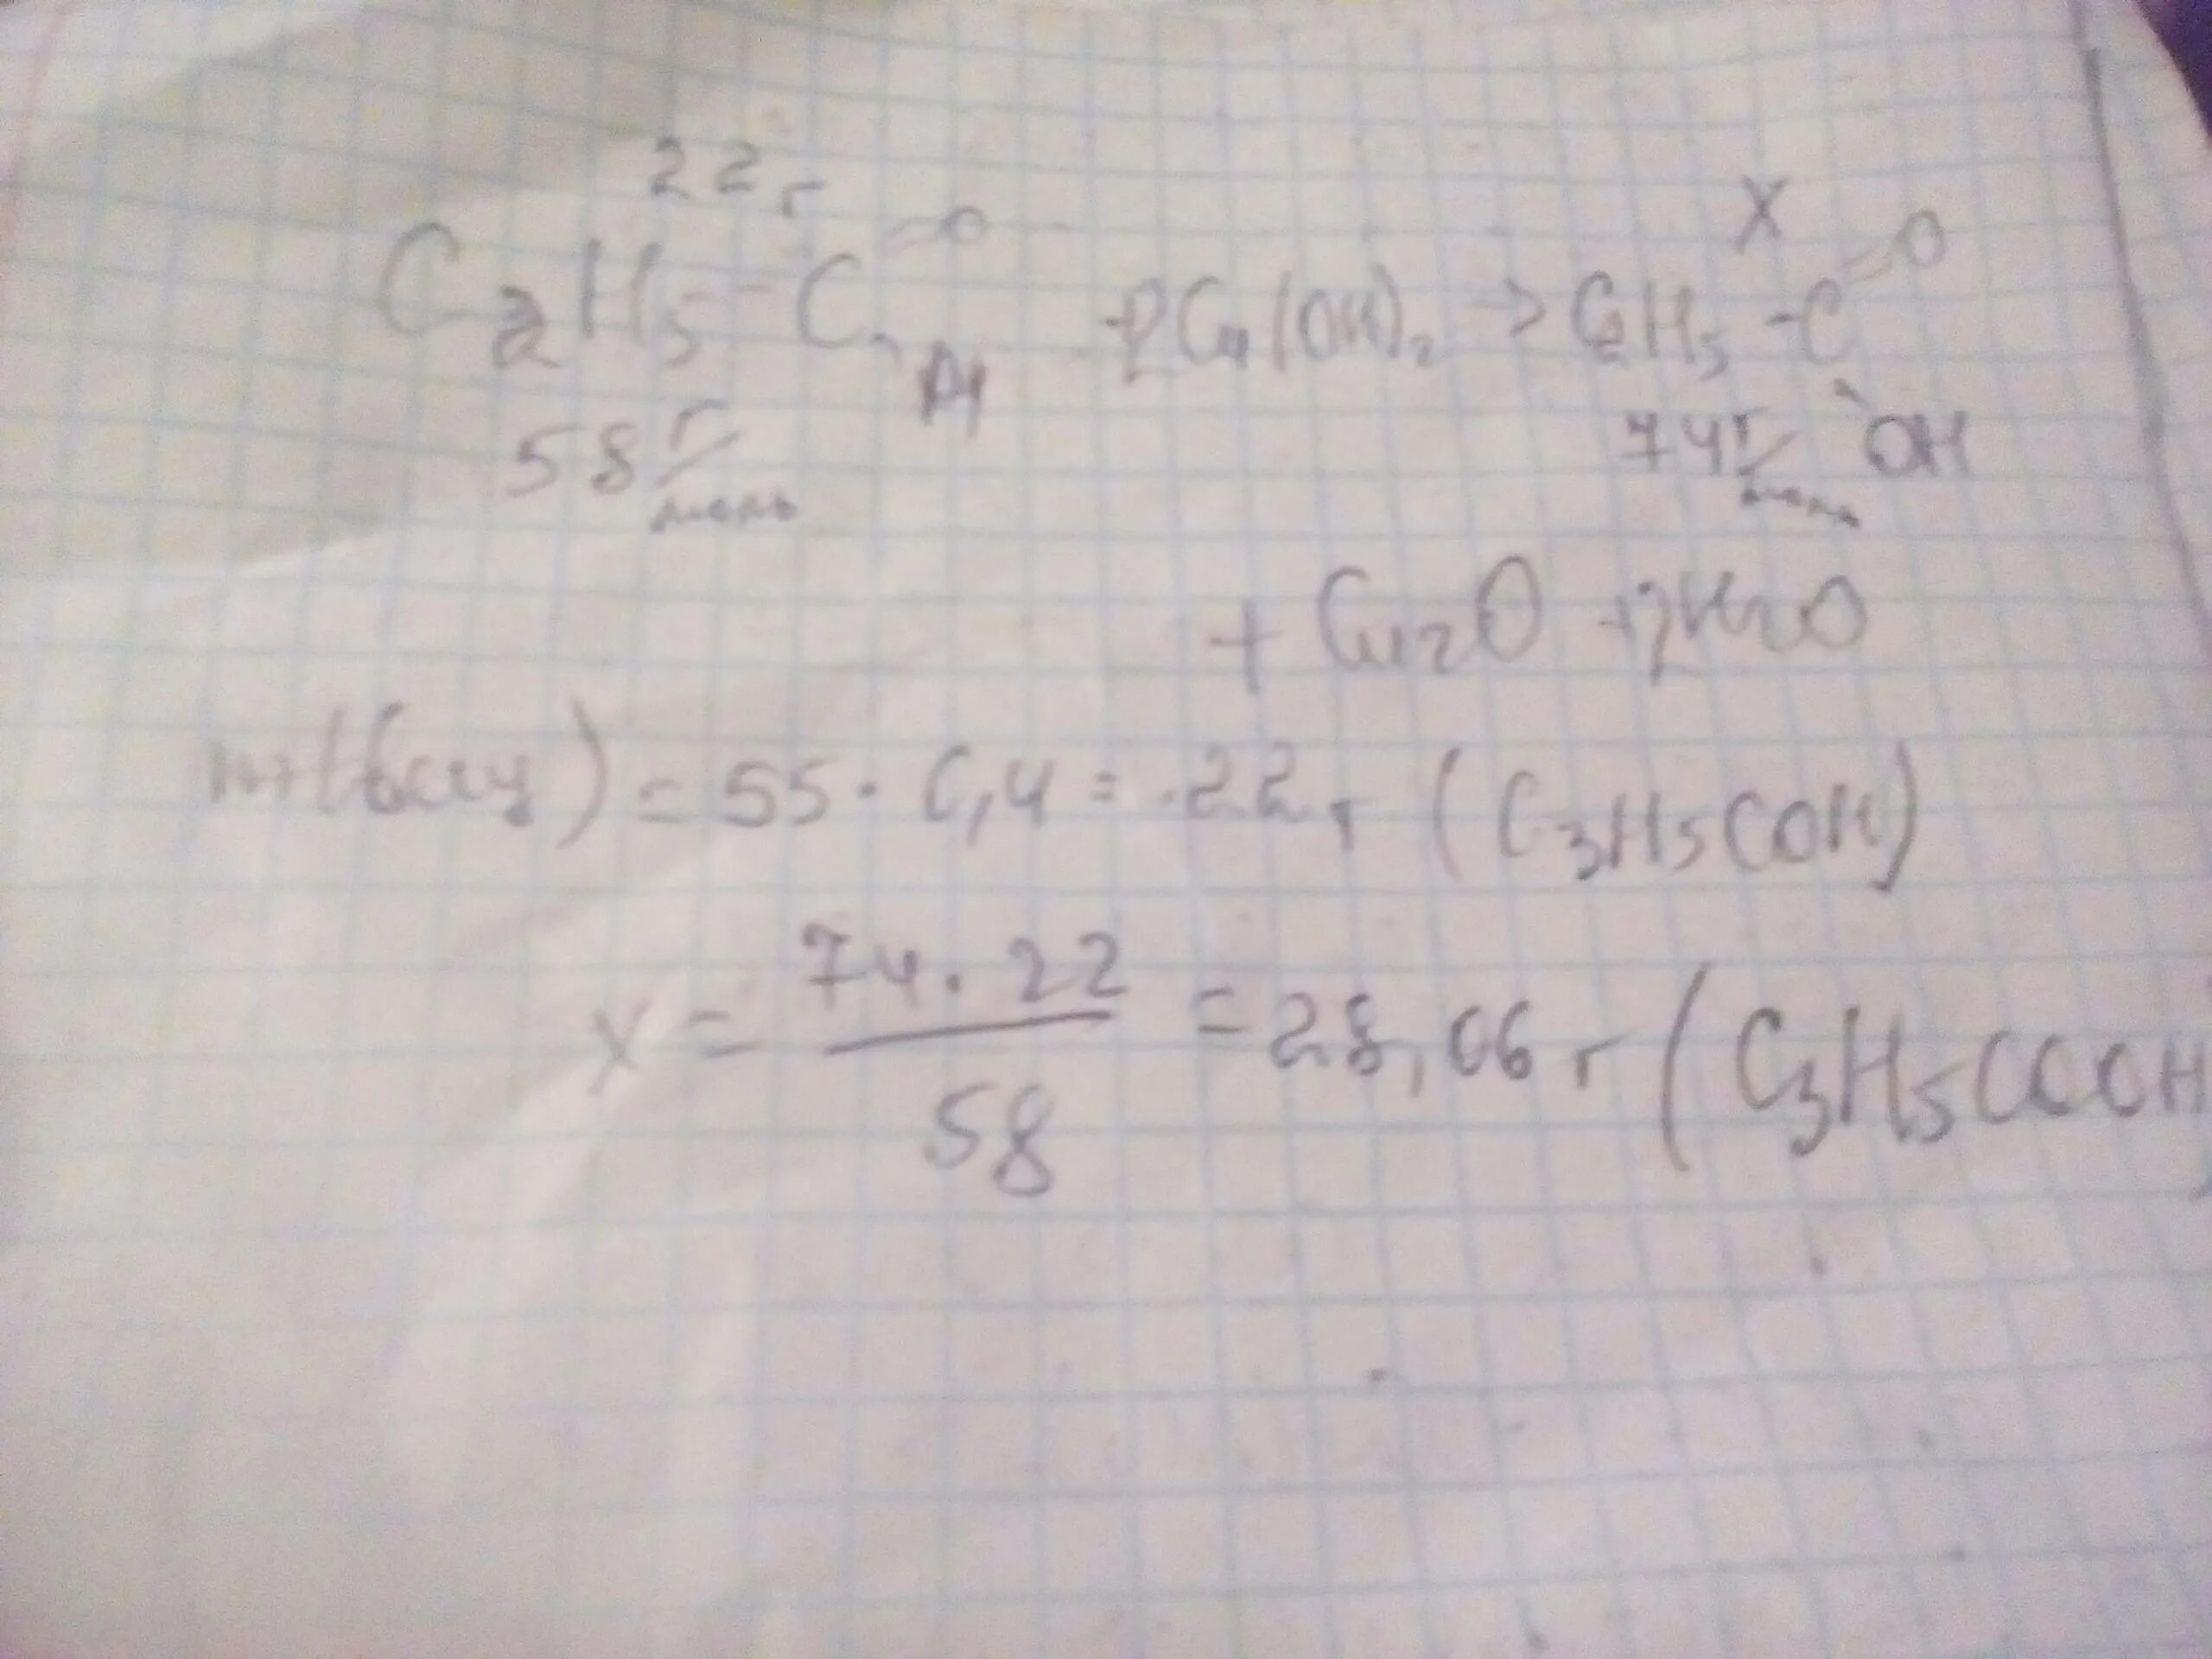 22 г X
C2H5 - C =O H + 2Cu(OH)2 → C2H5 - C =O OH
58 г/моль 74 г/моль
+ Cu2O + 2H2O
m( ) = 55 · 0,4 = 22 г (C3H5COH)
x = 74 · 22 / 58 = 28,06 г (C3H5COOH)